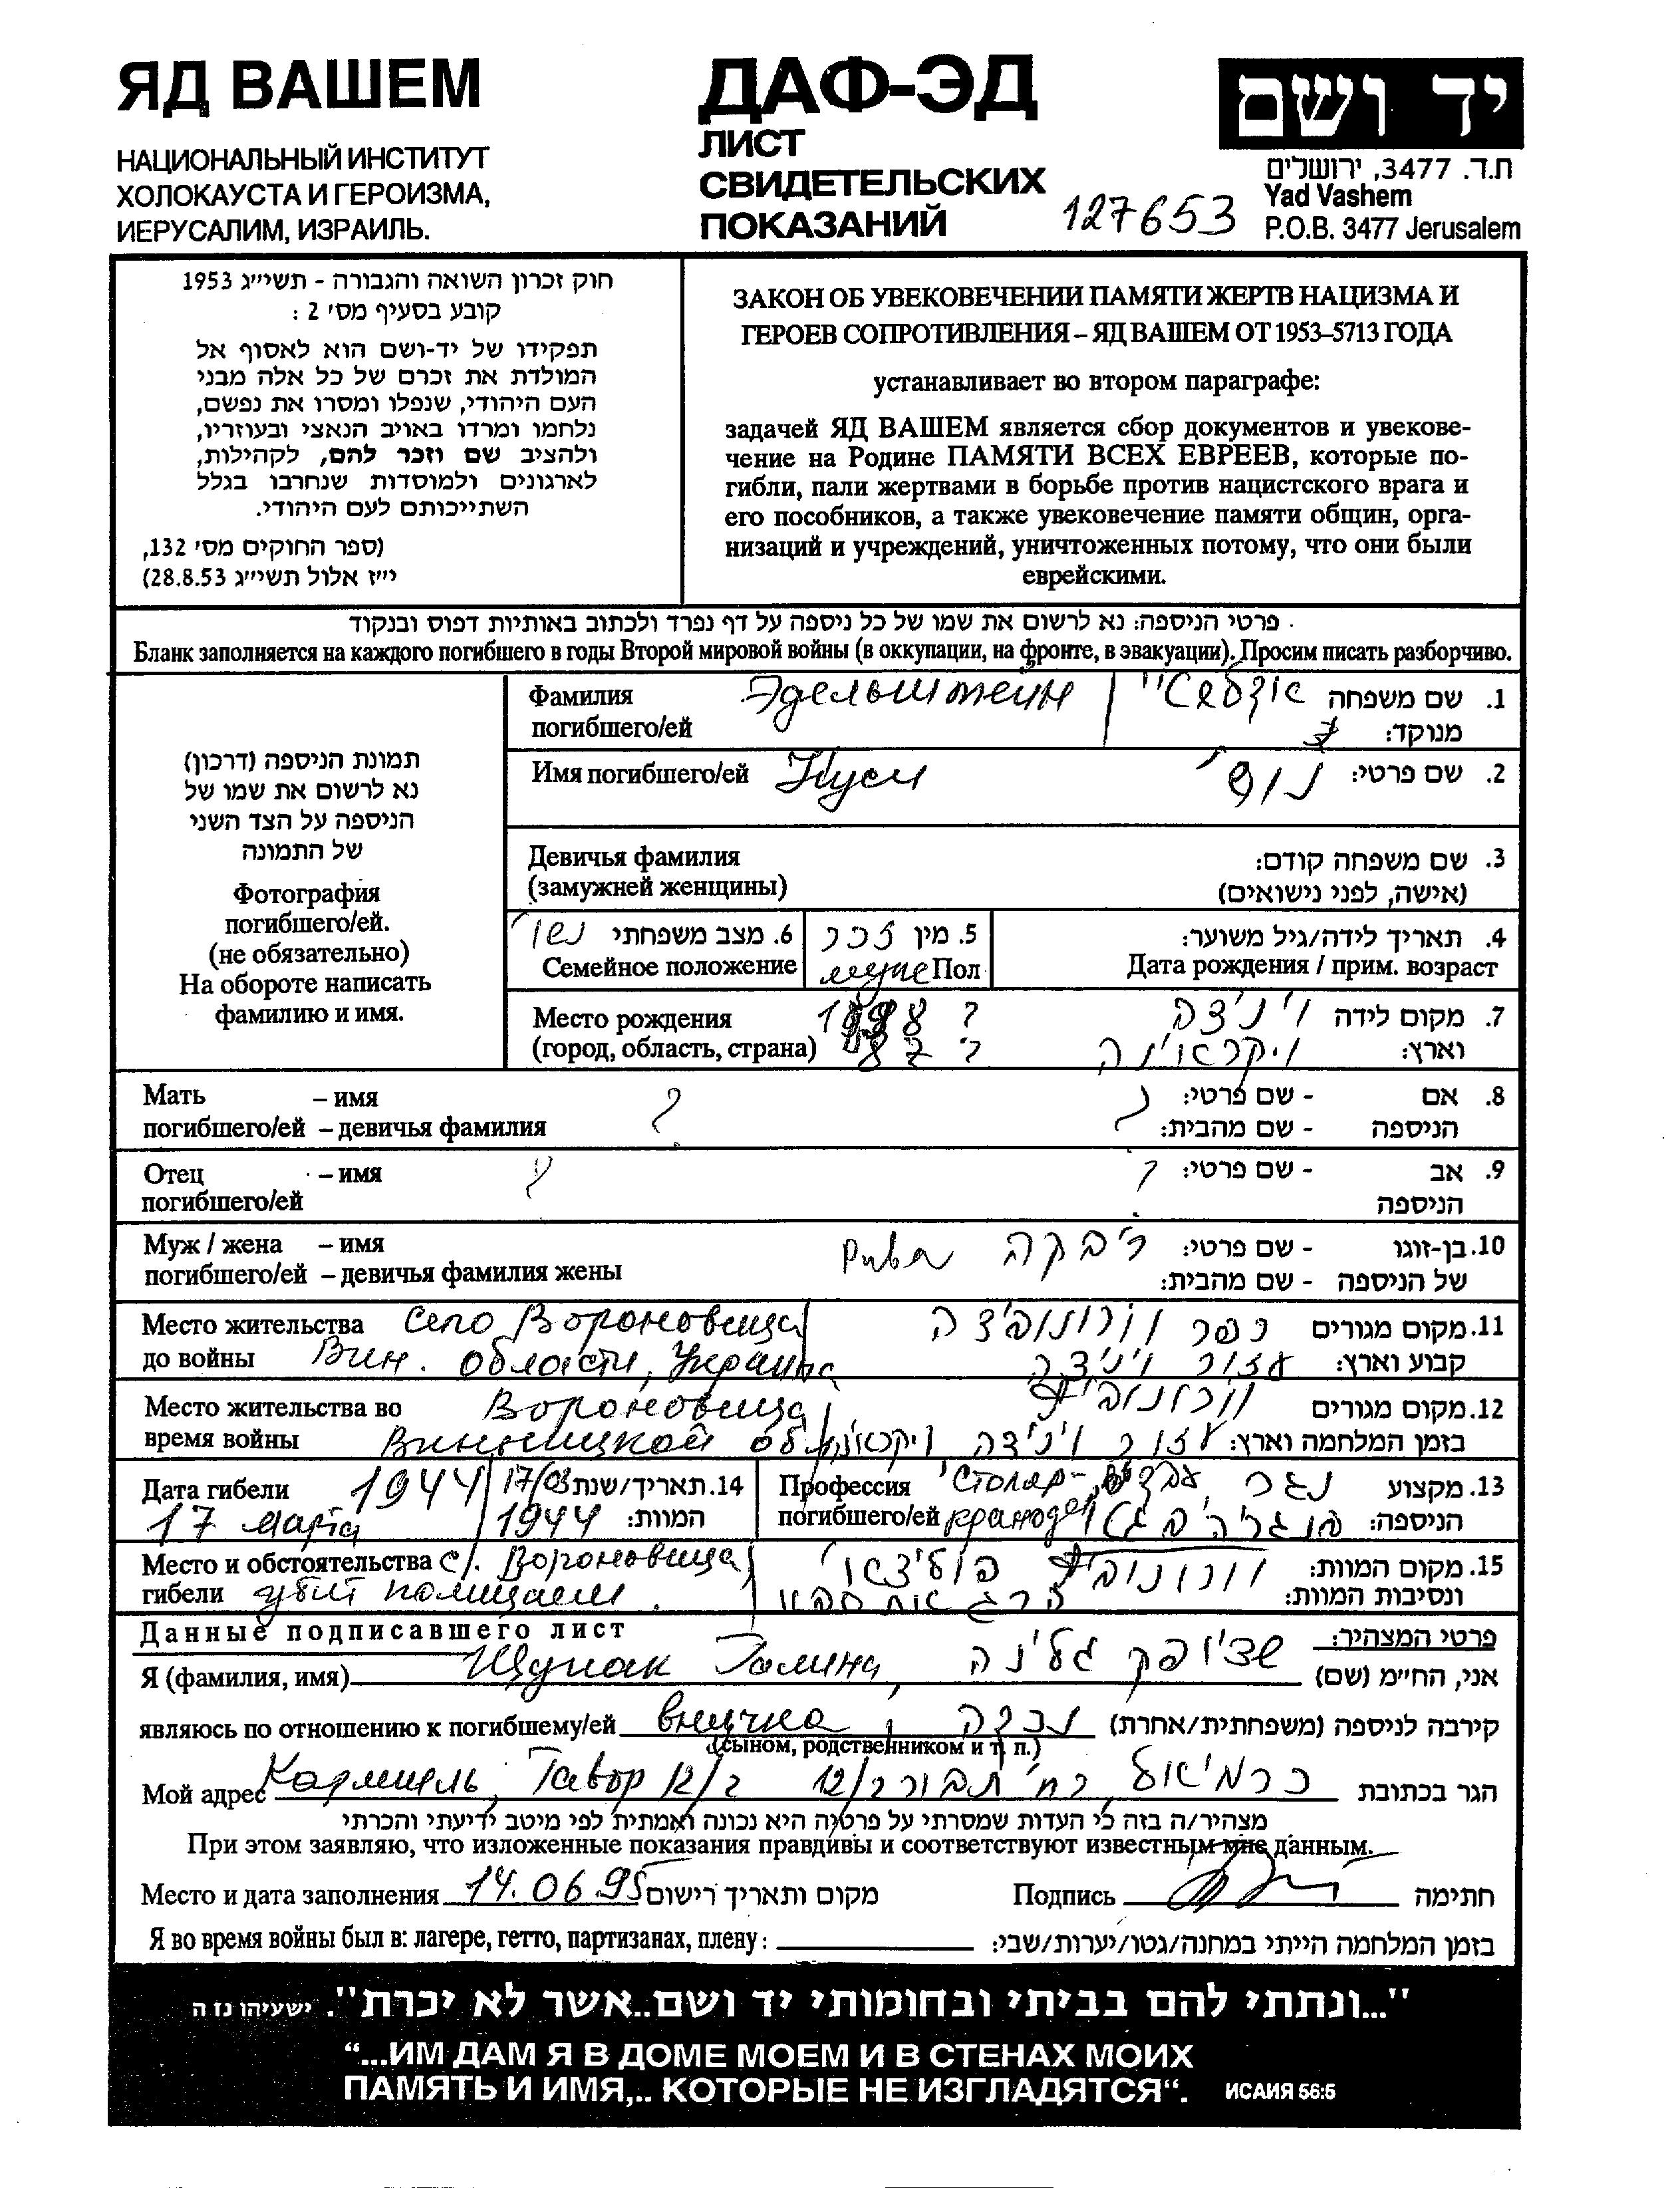 ЯД ВАШЕМ
НАЦИОНАЛЬНЫЙ ИНСТИТУТ
ХОЛОКАУСТА И ГЕРОИЗМА,
ИЕРУСАЛИМ, ИЗРАИЛЬ.
ДАФ-ЭД
ЛИСТ
СВИДЕТЕЛЬСКИХ
ПОКАЗАНИЙ
127653
יד ושם
ת.ד. 3477, ירושלים
Yad Vashem
P.O.B. 3477 Jerusalem
חוק זכרון השואה והגבורה - תשי״ג 1953
קובע בסעיף מס׳ 2 :
תפקידו של יד-ושם הוא לאסוף אל
המולדת את זכרם של כל אלה מבני
העם היהודי, שנפלו ומסרו את נפשם,
נלחמו ומרדו באויב הנאצי ובעוזריו,
ולהציב שם וזכר להם, לקהילות,
לארגונים ולמוסדות שנחרבו בגלל
השתייכותם לעם היהודי.
(ספר החוקים מס׳ 132,
י״ז אלול תשי״ג 28.8.53)
ЗАКОН ОБ УВЕКОВЕЧЕНИИ ПАМЯТИ ЖЕРТВ НАЦИЗМА И
ГЕРОЕВ СОПРОТИВЛЕНИЯ – ЯД ВАШЕМ ОТ 1953–5713 ГОДА
устанавливает во втором параграфе:
задачей ЯД ВАШЕМ является сбор документов и увекове-
чение на Родине ПАМЯТИ ВСЕХ ЕВРЕЕВ, которые по-
гибли, пали жертвами в борьбе против нацистского врага и
его пособников, а также увековечение памяти общин, орга-
низаций и учреждений, уничтоженных потому, что они были
еврейскими.
פרטי הניספה: נא לרשום את שמו של כל ניספה על דף נפרד ולכתוב באותיות דפוס ובנקוד
Бланк заполняется на каждого погибшего в годы Второй мировой войны (в оккупации, на фронте, в эвакуации). Просим писать разборчиво.
תמונת הניספה (דרכון)
נא לרשום את שמו של
הניספה על הצד השני
של התמונה
Фотография
погибшего/ей.
(не обязательно)
На обороте написать
фамилию и имя.
Фамилия Эдельштейн 1. שם משפחה
погибшего/ей מנוקד:
Имя погибшего/ей Нуси 2. שם פרטי: נוסי
Девичья фамилия 3. שם משפחה קודם:
(замужней женщины) (אישה, לפני נישואים)
6. מצב משפחתי נשוי 5. מין זכר 4. תאריך לידה/גיל משוער:
Семейное положение Пол Дата рождения / прим. возраст
Место рождения ? 7. מקום לידה ויניצה
(город, область, страна) 87 ? וארץ: ויקראינה
Мать – имя ? ? 8. אם - שם פרטי:
погибшего/ей – девичья фамилия הניספה - שם מהבית:
Отец – имя ? ? 9. אב - שם פרטי:
погибшего/ей הניספה
Муж / жена – имя Рива רבקה 10. בן-זוגו - שם פרטי:
погибшего/ей – девичья фамилия жены של הניספה - שם מהבית:
Место жительства село Вороновица 11. מקום מגורים כפר וורונוביצה
до войны Вин. области, Украина קבוע וארץ: אזור ויניצה
Место жительства во Вороновица 12. מקום מגורים
время войны Винницкой об. בזמן המלחמה וארץ: אזור ויניצה
Дата гибели 1944 14. תאריך/שנת 17/03 Профессия Столяр- 13. מקצוע נגר
17 марта המוות: 1944 погибшего/ей הניספה:
Место и обстоятельства с/. Вороновица 15. מקום המוות:
гибели убит полицаем. ונסיבות המוות:
Данные подписавшего лист פרטי המצהיר:
Я (фамилия, имя) Щупак Галина, גלינה אני, החי״מ (שם)
являюсь по отношению к погибшему/ей внучка, נכדה קירבה לניספה (משפחתית/אחרת)
(сыном, родственником и т. п.)
Мой адрес Кармиель, Тавор 12/2 כרמיאל רח׳ תבור 12/2 הגר בכתובת
מצהיר/ה בזה כי העדות שמסרתי על פרטיה היא נכונה ואמתית לפי מיטב ידיעתי והכרתי
При этом заявляю, что изложенные показания правдивы и соответствуют известным мне данным.
Место и дата заполнения 14.06.95 מקום ותאריך רישום Подпись חתימה
Я во время войны был в: лагере, гетто, партизанах, плену: בזמן המלחמה הייתי במחנה/גטו/יערות/שבי:
"...ונתתי להם בביתי ובחומותי יד ושם..אשר לא יכרת". ישעיהו נז ה
“...ИМ ДАМ Я В ДОМЕ МОЕМ И В СТЕНАХ МОИХ
ПАМЯТЬ И ИМЯ,.. КОТОРЫЕ НЕ ИЗГЛАДЯТСЯ“. ИСАИЯ 56:5